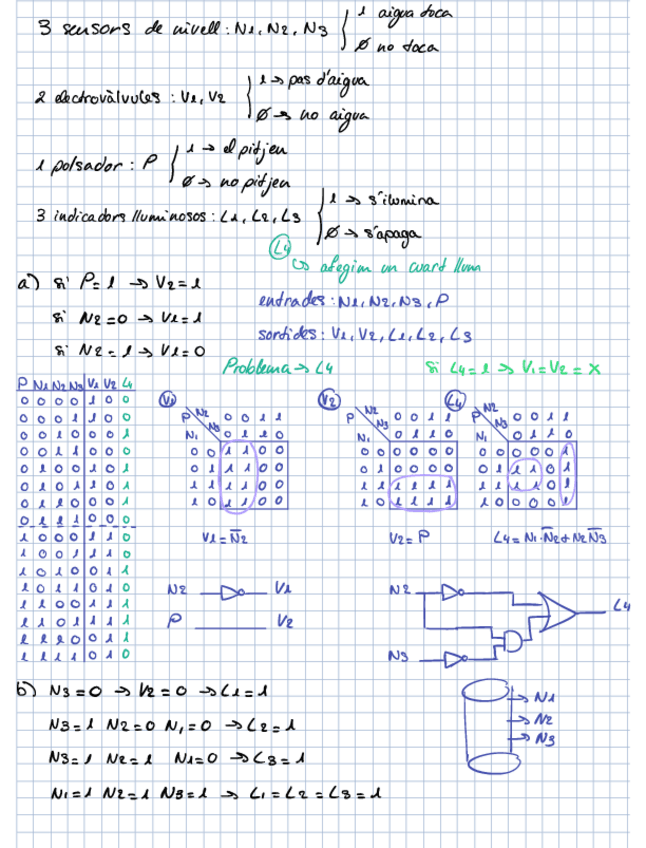 3 sensors de nivell : N1, N2, N3 { 1 aigua toca
Ø no toca
2 electrovàlvules : V1, V2 { 1 → pas d'aigua
Ø → no aigua
1 polsador : P { 1 → el pitjen
Ø → no pitjen
3 indicadors lluminosos : L1, L2, L3 { 1 → s'ilumina
Ø → s'apaga
L4
↳ afegim un cuart llum
a) si P = 1 → V2 = 1
entrades : N1, N2, N3, P
si N2 = 0 → V1 = 1
sortides : V1, V2, L1, L2, L3
si N2 = 1 → V1 = 0
Problema → L4
Si L4 = 1 → V1 = V2 = X
P N1 N2 N3 V1 V2 L4
0 0 0 0 1 0 0
0 0 0 1 1 0 0
0 0 1 0 0 0 1
0 0 1 1 0 0 0
0 1 0 0 1 0 1
0 1 0 1 1 0 1
0 1 1 0 0 0 1
0 1 1 1 0 0 0
1 0 0 0 1 1 0
1 0 0 1 1 1 0
1 0 1 0 0 1 1
1 0 1 1 0 1 0
1 1 0 0 1 1 1
1 1 0 1 1 1 1
1 1 1 0 0 1 1
1 1 1 1 0 1 0
V1
P N2 0 0 1 1
N1 N3 0 1 1 0
0 0 1 1 0 0
0 1 1 1 0 0
1 1 1 1 0 0
1 0 1 1 0 0
V1 = N̅2
V2
P N2 0 0 1 1
N1 N3 0 1 1 0
0 0 0 0 0 0
0 1 0 0 0 0
1 1 1 1 1 1
1 0 1 1 1 1
V2 = P
L4
P N2 0 0 1 1
N1 N3 0 1 1 0
0 0 0 0 0 1
0 1 1 1 0 1
1 1 1 1 0 1
1 0 0 0 0 1
L4 = N1·N̅2 + N2 N̅3
N2 V1
P V2
N2
L4
N3
b) N3 = 0 → V2 = 0 → L1 = 1
N3 = 1 N2 = 0 N1 = 0 → L2 = 1
N3 = 1 N2 = 1 N1 = 0 → L3 = 1
N1 = 1 N2 = 1 N3 = 1 → L1 = L2 = L3 = 1
→ N1
→ N2
→ N3